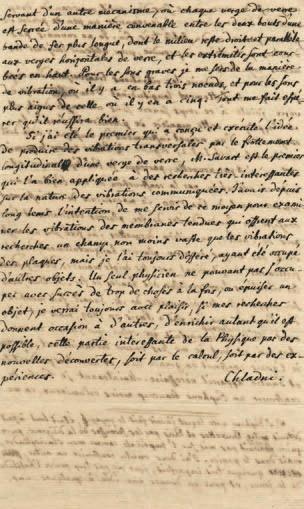 servant d'un autre mécanisme, où chaque verge de verre
est serrée d'une manière convenable entre les deux bouts d'une
bande de fer plus longue, dont le milieu reste droit et parallele
aux verges horizontales de verre, et les extrémités sont cour
bées en haut. Pour les sons graves je me sers de la manière
de vibration, où il y a en bas trois noeuds, et pour les sons
plus aigus de celle où il y en a cinq. Tout me fait espe
rer qu'il réussira bien.
Si j'ai été le premier qui a conçu et exécuté l'idée
de produire des vibrations transversales par le frottement
longitudinal d'une verge de verre, M. Savart est le premier
qui l'a bien appliquée à des recherches très interessantes
sur la nature des vibrations communiquées. J'avois depuis
long tems l'intention de me servir de ce moyen pour exami
ner les vibrations des membranes tendues qui offrent aux
recherches un champ non moins vaste que les vibrations
des plaques, mais je l'ai toujours différé, ayant été occupé
d'autres objets. Un seul physicien ne pouvant pas s'occu
per avec succès de trop de choses à la fois, ou épuiser un
objet, je verrai toujours avec plaisir, si mes recherches
donnent occasion à d'autres, d'enrichir autant qu'il est
possible, cette partie interessante de la Physique par des
nouvelles découvertes, soit par le calcul, soit par des ex
périences.
Chladni.